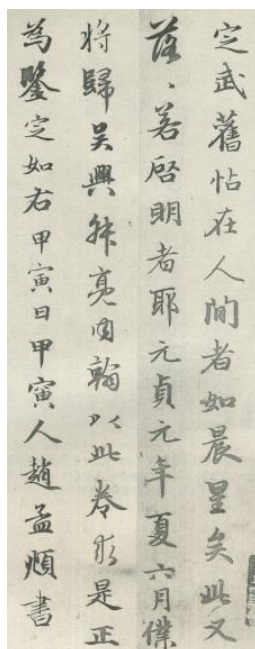 定武舊帖在人間者如晨星矣此又
落々若啓明者耶元貞元年夏六月僕
將歸吳興舛亮内翰以此卷求是正
為鑒定如右甲寅日甲寅人趙孟頫書